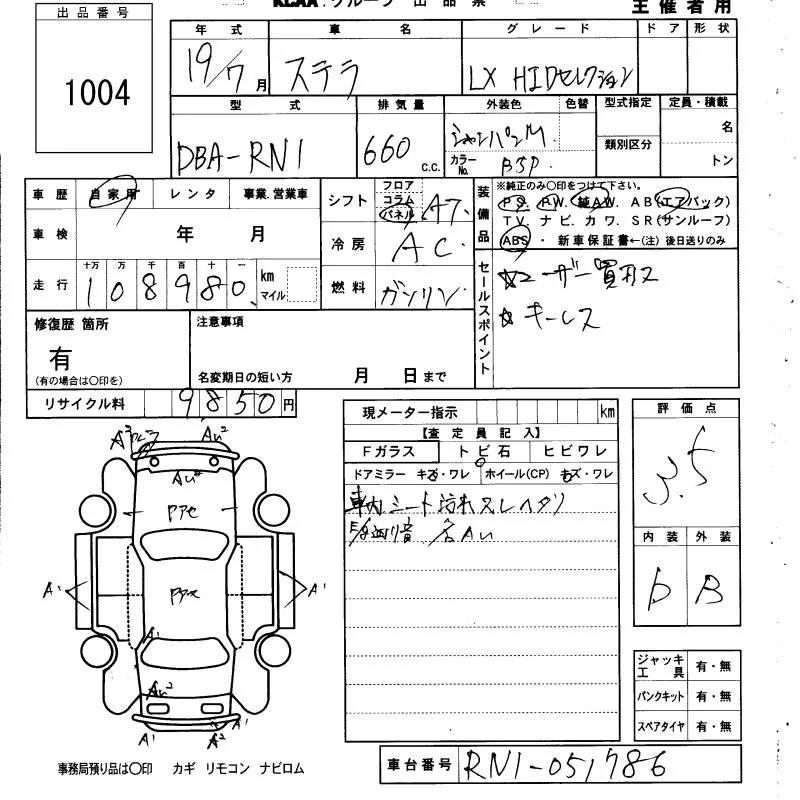 KCAA:グループ 出品票
主催者用
出品番号
1004
年式 車名 グレード ドア 形状
19/7月 ステラ LX HIDセレクション
型式 排気量 外装色 色替 型式指定 定員・積載
DBA-RN1 660 c.c. シャンパンM. 類別区分 名
カラーNo. BJP. トン
車歴 自家用 レンタ 事業.営業車
車検 年 月
走行 十万 万 千 百 十 一 km マイル
108980.
シフト フロア コラム パネル A7
冷房 AC
燃料 ガソリン
装備品 ※純正のみ〇印をつけて下さい。
P.S. P.W. 純A.W. A B (エアバック)
T V. ナ ビ. カ ワ. S R (サンルーフ)
ABS ・ 新車保証書←(注) 後日送りのみ
セールスポイント
☆ユーザー買取ス
☆キーレス
修復歴 箇所
有
(有の場合は〇印を)
注意事項
名変期日の短い方 月 日まで
リサイクル料 9850円
現メーター指示 km
【査定員記入】
Fガラス トビ石 ヒビワレ
ドアミラー キズ・ワレ ホイール(CP) キズ・ワレ
車内シート汚れスレヘタリ
各AU
評価点
3.5
内装 外装
D B
A³ AU²
AU²
Pアセ
A¹ A¹
Pアセ
A¹
AU²
A¹ A² A¹
ジャッキ 工具 有・無
パンクキット 有・無
スペアタイヤ 有・無
事務局預り品は〇印 カギ リモコン ナビロム
車台番号 RN1-051786